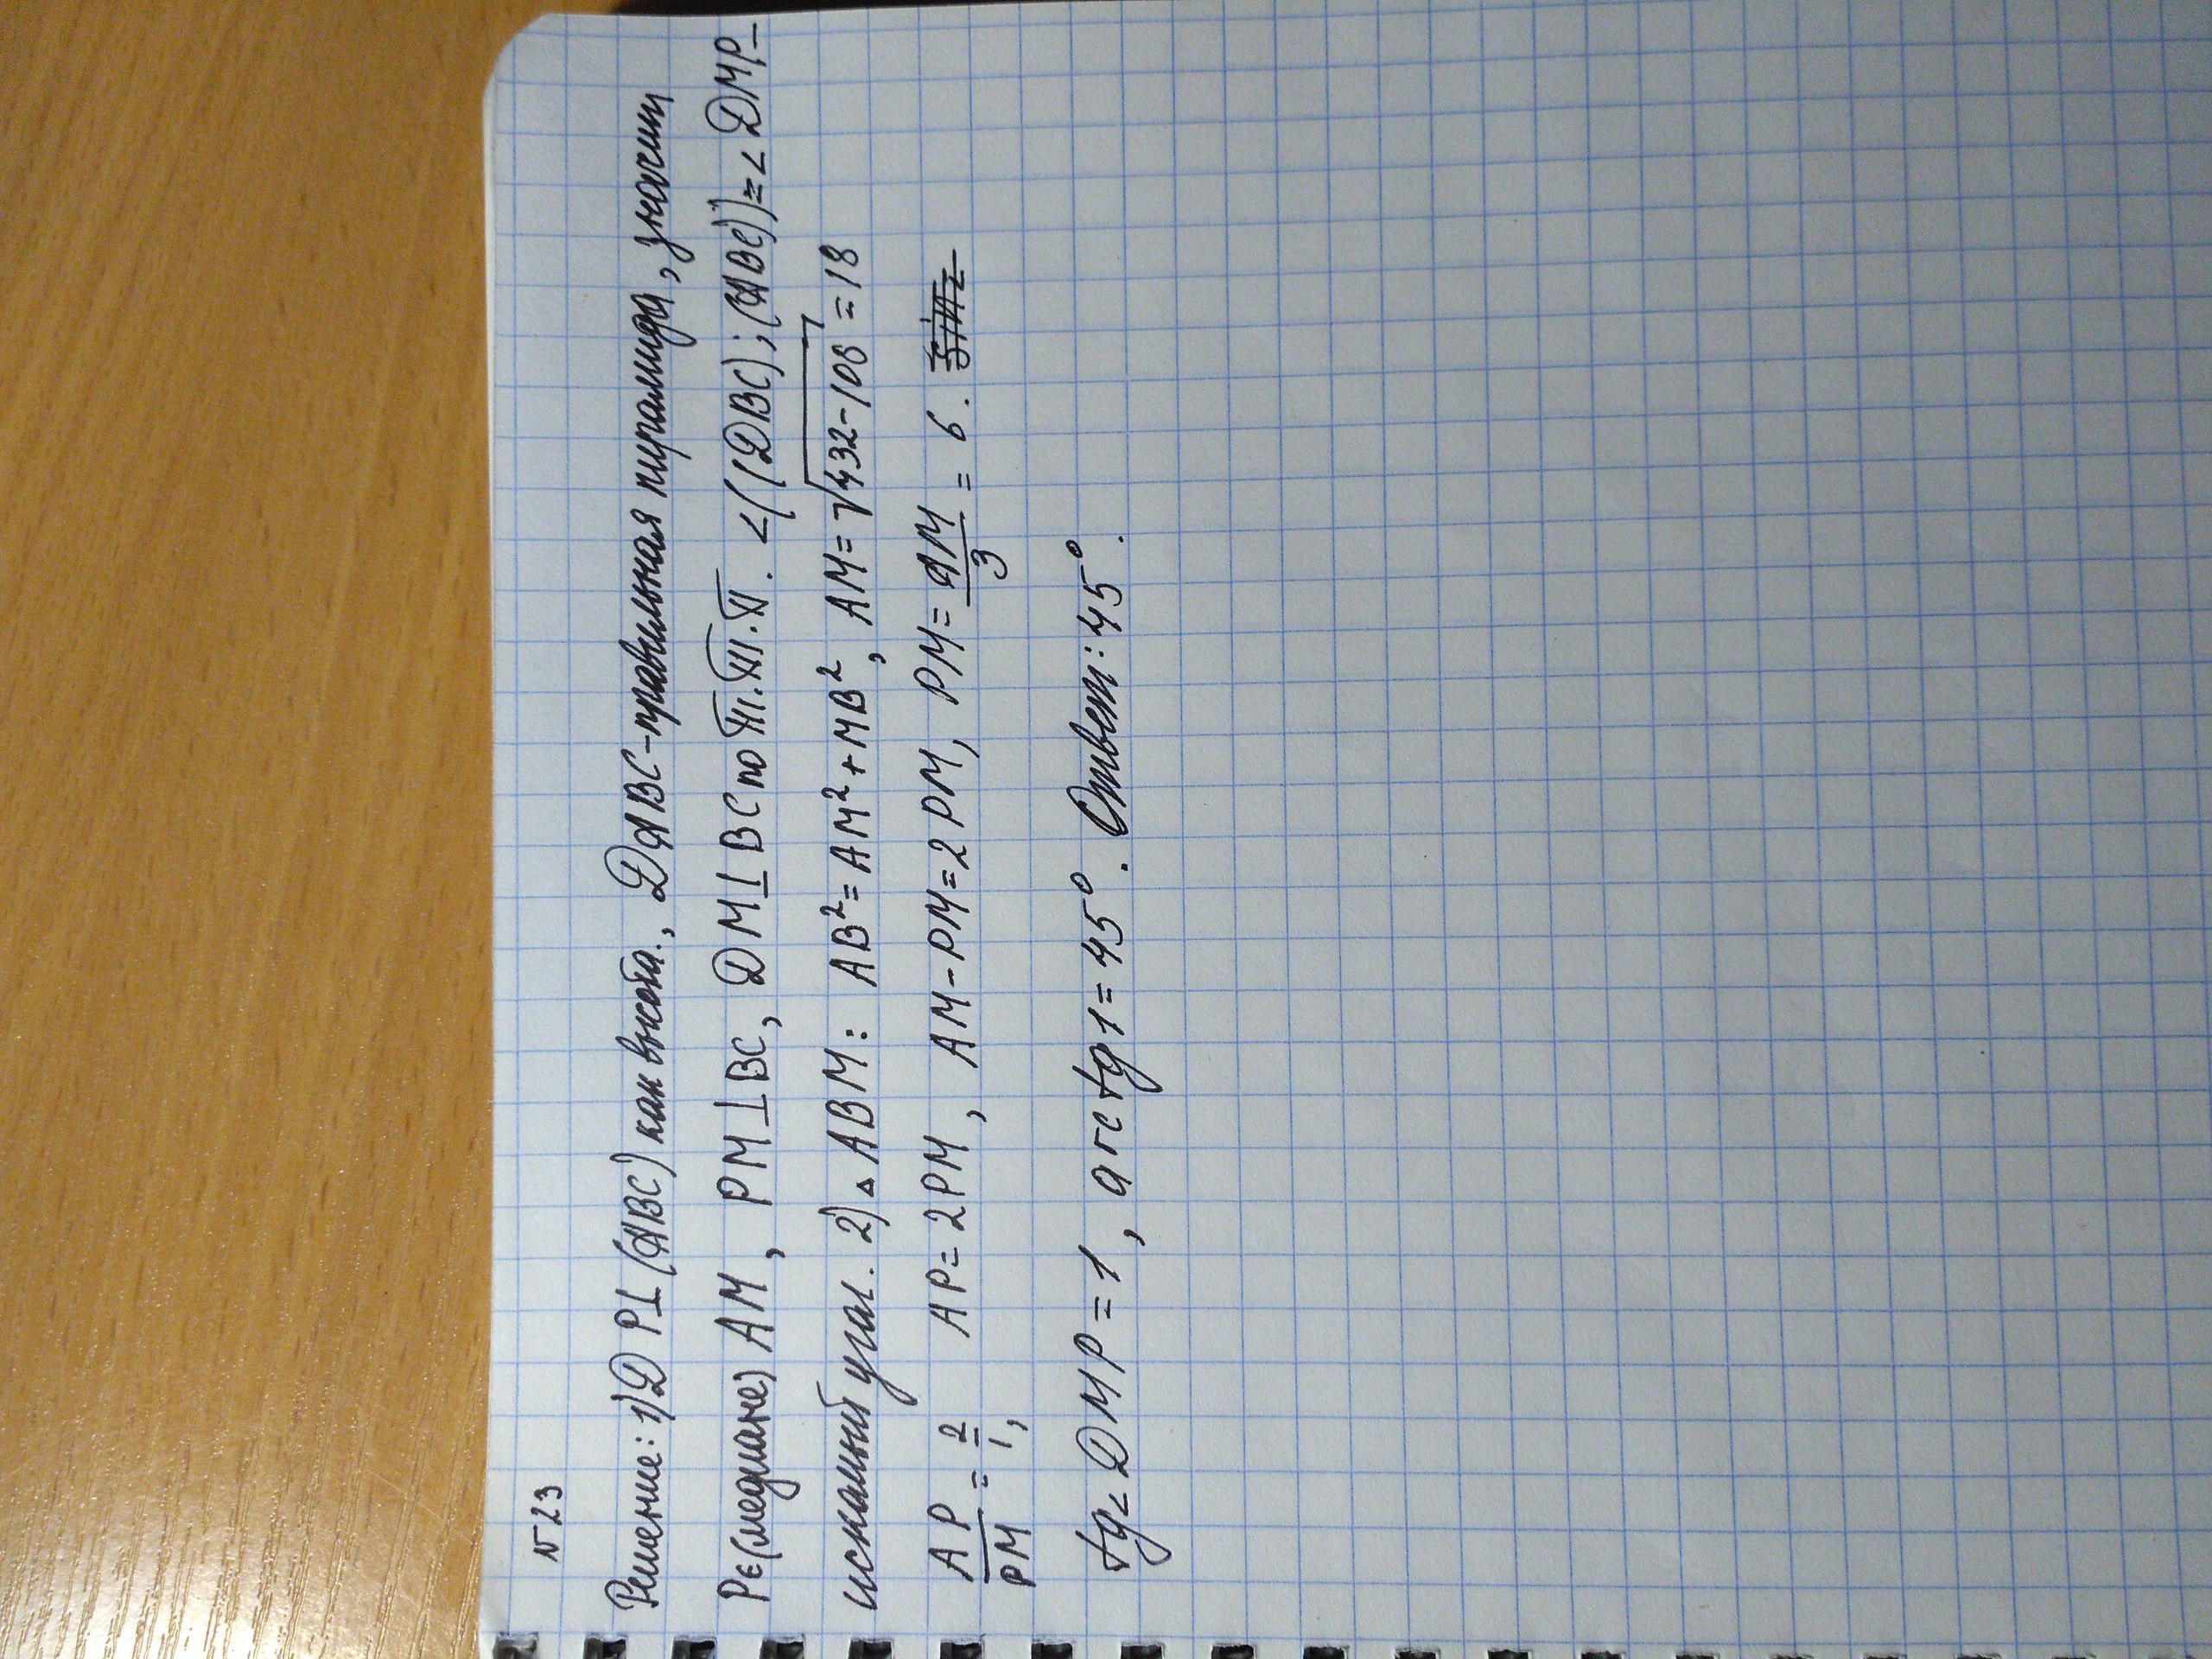 №23
Решение: 1) DP⊥(ABC) как высота., DABC-правильная пирамида, значит
P∈(медиане) AM, PM⊥BC, DM⊥BC по Т.Т.П. ∠((DBC);(ABC))=∠DMP-
искомый угол. 2) △ABM: AB²=AM²+MB², AM=√432-108=18
AP/PM=2/1, AP=2PM, AM-PM=2PM, PM=AM/3=6.
tg∠DMP=1, arctg1=45°. Ответ:45°.